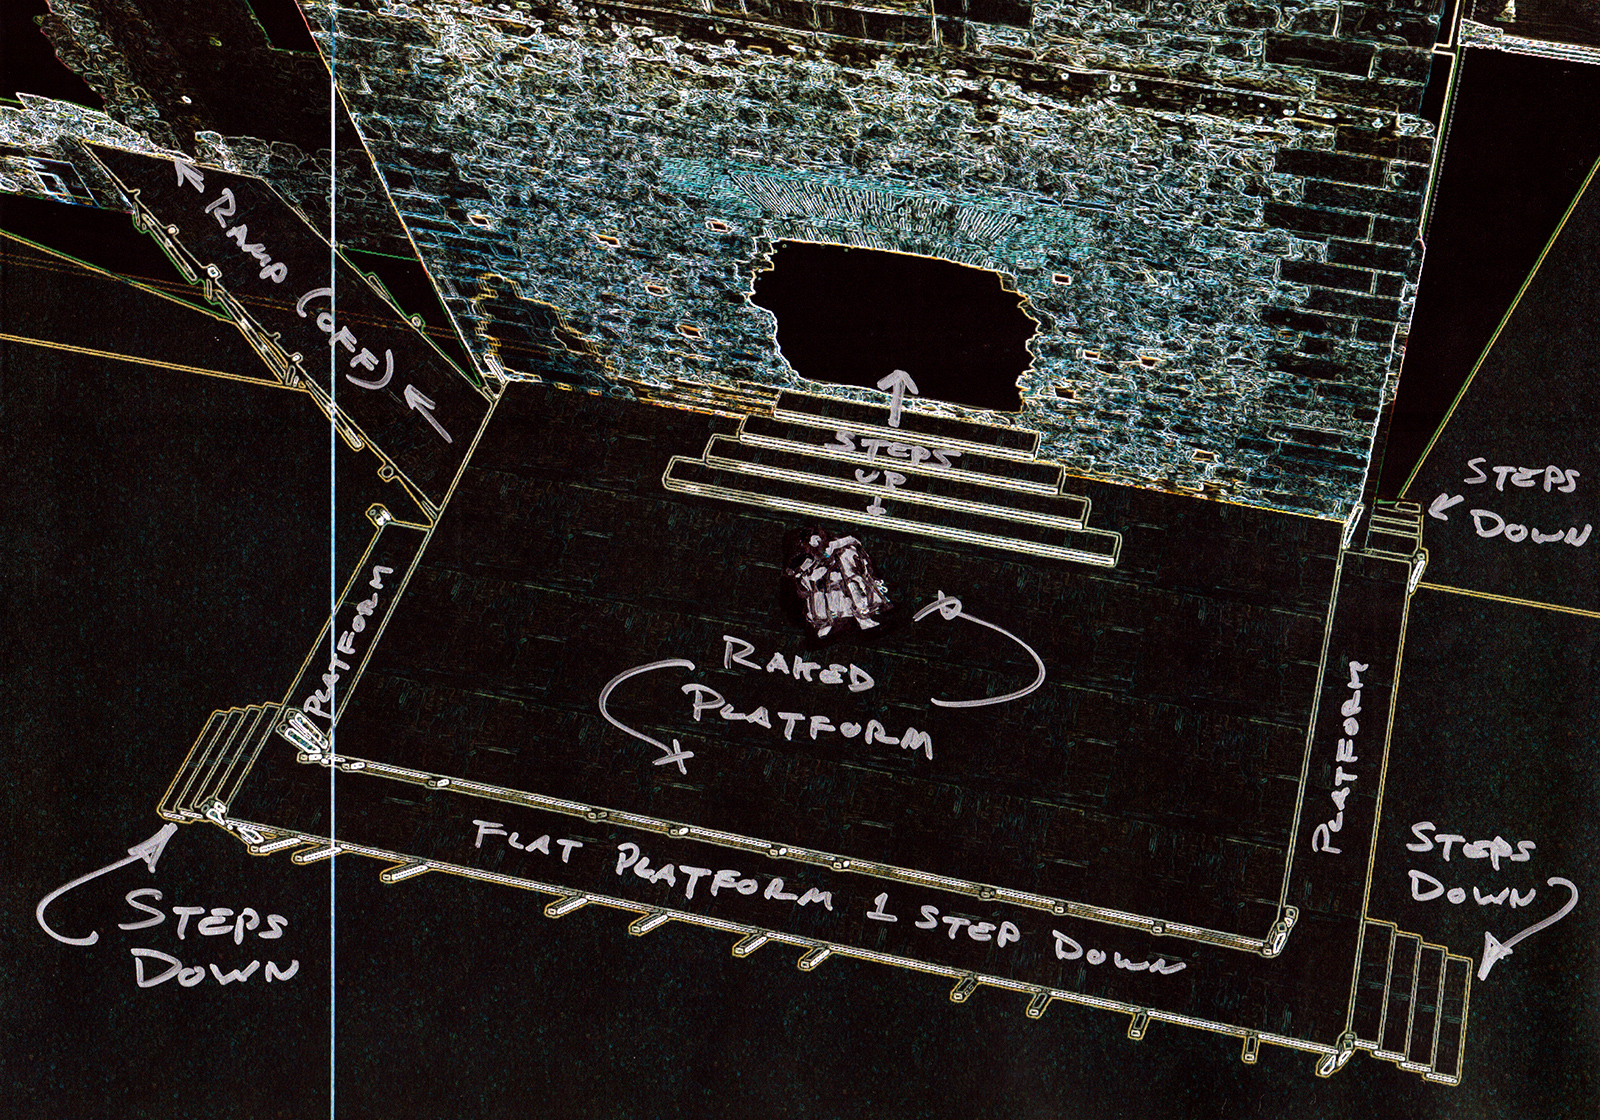 RAMP (OFF)
STEPS
UP
1
STEPS
DOWN
PLATFORM
RAKED
PLATFORM
PLATFORM
FLAT PLATFORM 1 STEP DOWN
STEPS
DOWN
STEPS
DOWN